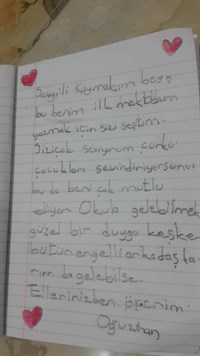 Sevgili Kaymakam bey,
bu benim ilk mektubum
yazmak için sizi seçtim.
Siziçok seviyorum çünkü
çocukları sevindiriyorsunuz
bu da beni çok mutlu
ediyor. Okula gelebilmek
güzel bir duygu keşke
bütün engelli arkadaşla
rım da gelebilse.
Ellerinizben öperim.
Oğuzhan